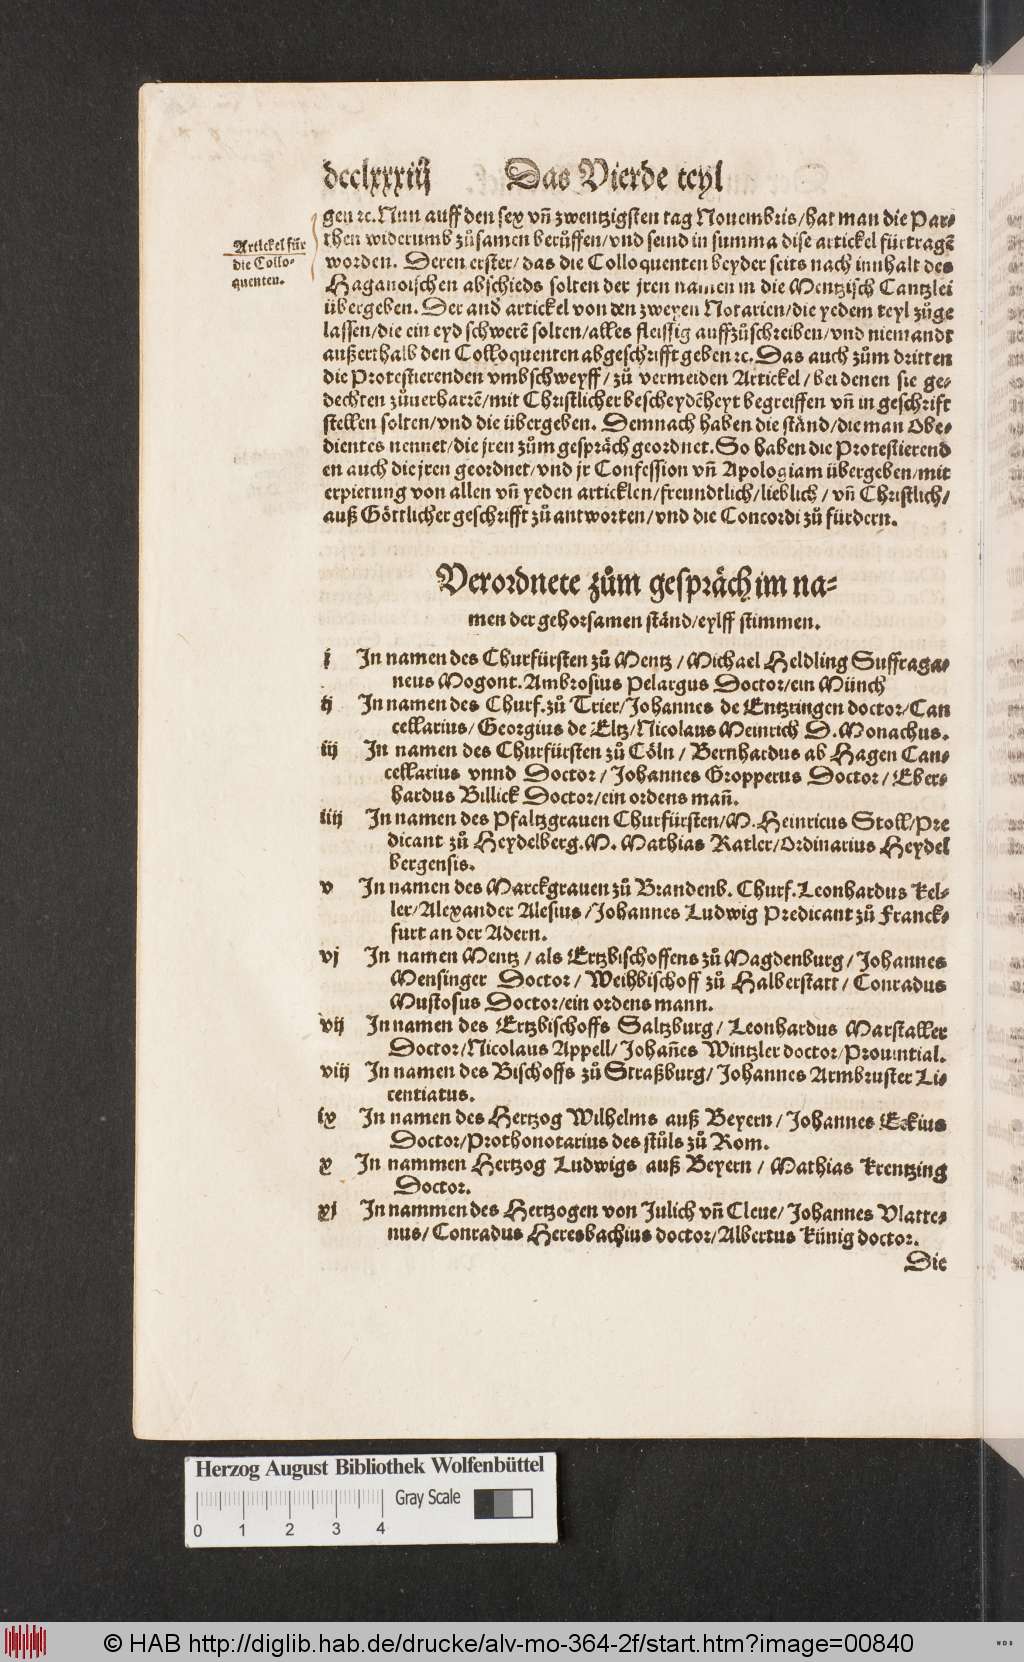 dcclxxxiiij Das Vierde teyl
gen ꝛc. Nun auff den sex vñ zwentzigsten tag Nouembris/hat man die Par⸗
then widerumb zůsamen berůffen/vnd seind in summa dise artickel fürtragẽ
worden. Deren erster/das die Colloquenten beyder seits nach innhalt des
Haganoischen abschieds solten der jren namen in die Mentzisch Cantzlei
übergeben. Der and artickel von den zweyen Notarien/die yedem teyl zůge
lassen/die ein eyd schwerẽ solten/alles fleissig auffzůschreiben/vnd niemandt
außerthalb den Colloquenten abgeschrifft geben ꝛc. Das auch zům dritten
die Protestierenden vmbschweyff/zů vermeiden Artickel/bei denen sie ge⸗
dechten zůuerharrẽ/mit Christlicher bescheydẽheyt begreiffen vñ in geschrift
stellen solten/vnd die übergeben. Demnach haben die stånd/die man Obe⸗
dientes nennet/die jren zům gespråch geordnet. So haben die Protestierend
en auch die jren geordnet/vnd jr Confession vñ Apologiam übergeben/mit
erpietung von allen vñ yeden articklen/freundtlich/lieblich/vñ Christlich/
auß Göttlicher geschrifft zů antworten/vnd die Concordi zů fürdern.
Artickel für
die Collo⸗
quenten.
Verordnete zům gespråch im na⸗
men der gehorsamen stånd/eylff stimmen.
j In namen des Churfürsten zů Mentz/Michael Heldling Suffraga⸗
neus Mogont. Ambrosius Pelargus Doctor/ein Münch
ij In namen des Churf. zů Trier/Johannes de Entzringen doctor/Can
cellarius/Georgius de Eltz/Nicolaus Meinrich D. Monachus.
iij In namen des Churfürsten zů Cöln/Bernhardus ab Hagen Can⸗
cellarius vnnd Doctor/Johannes Gropperus Doctor/Eber⸗
hardus Billick Doctor/ein ordens mañ.
iiij In namen des Pfaltzgrauen Churfürsten/M. Heinricus Stoll/Pre
dicant zů Heydelberg. M. Mathias Ratler/Ordinarius Heydel
bergensis.
v In namen des Marckgrauen zů Brandenb. Churf. Leonhardus Kel⸗
ler/Alexander Alesius/Johannes Ludwig Predicant zů Franck⸗
furt an der Adern.
vj In namen Mentz/als Ertzbischoffens zů Magdenburg/Johannes
Mensinger Doctor/Weihbischoff zů Halberstatt/Conradus
Mustosus Doctor/ein ordens mann.
vij In namen des Ertzbischoffs Saltzburg/Leonhardus Marstaller
Doctor/Nicolaus Appell/Johañes Wintzler doctor/Prouintial.
viij In namen des Bischoffs zů Straßburg/Johannes Armbruster Li⸗
centiatus.
ix In namen des Hertzog Wilhelms auß Beyern/Johannes Eckius
Doctor/Prothonotarius des stůls zů Rom.
x In nammen Hertzog Ludwigs auß Beyern/Mathias Krentzing
Doctor.
xj In nammen des Hertzogen von Julich vñ Cleue/Johannes Vlatte⸗
nus/Conradus Heresbachius doctor/Albertus Künig doctor.
Die
Herzog August Bibliothek Wolfenbüttel
Gray Scale
0 1 2 3 4
© HAB http://diglib.hab.de/drucke/alv-mo-364-2f/start.htm?image=00840